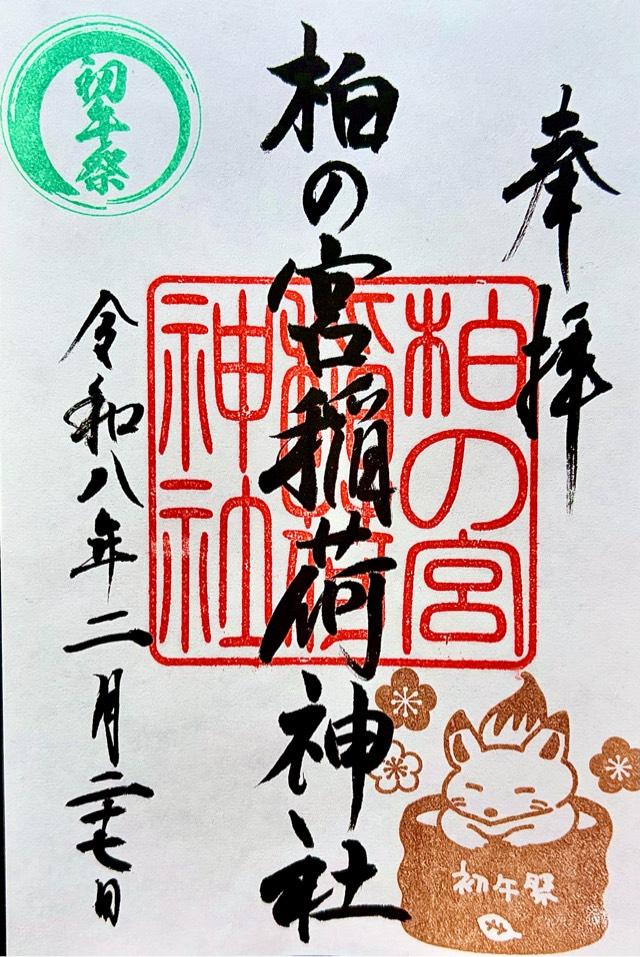 奉拝
柏の宮稲荷神社
柏の宮
神社
令和八年二月二十七日
初午祭
初午祭